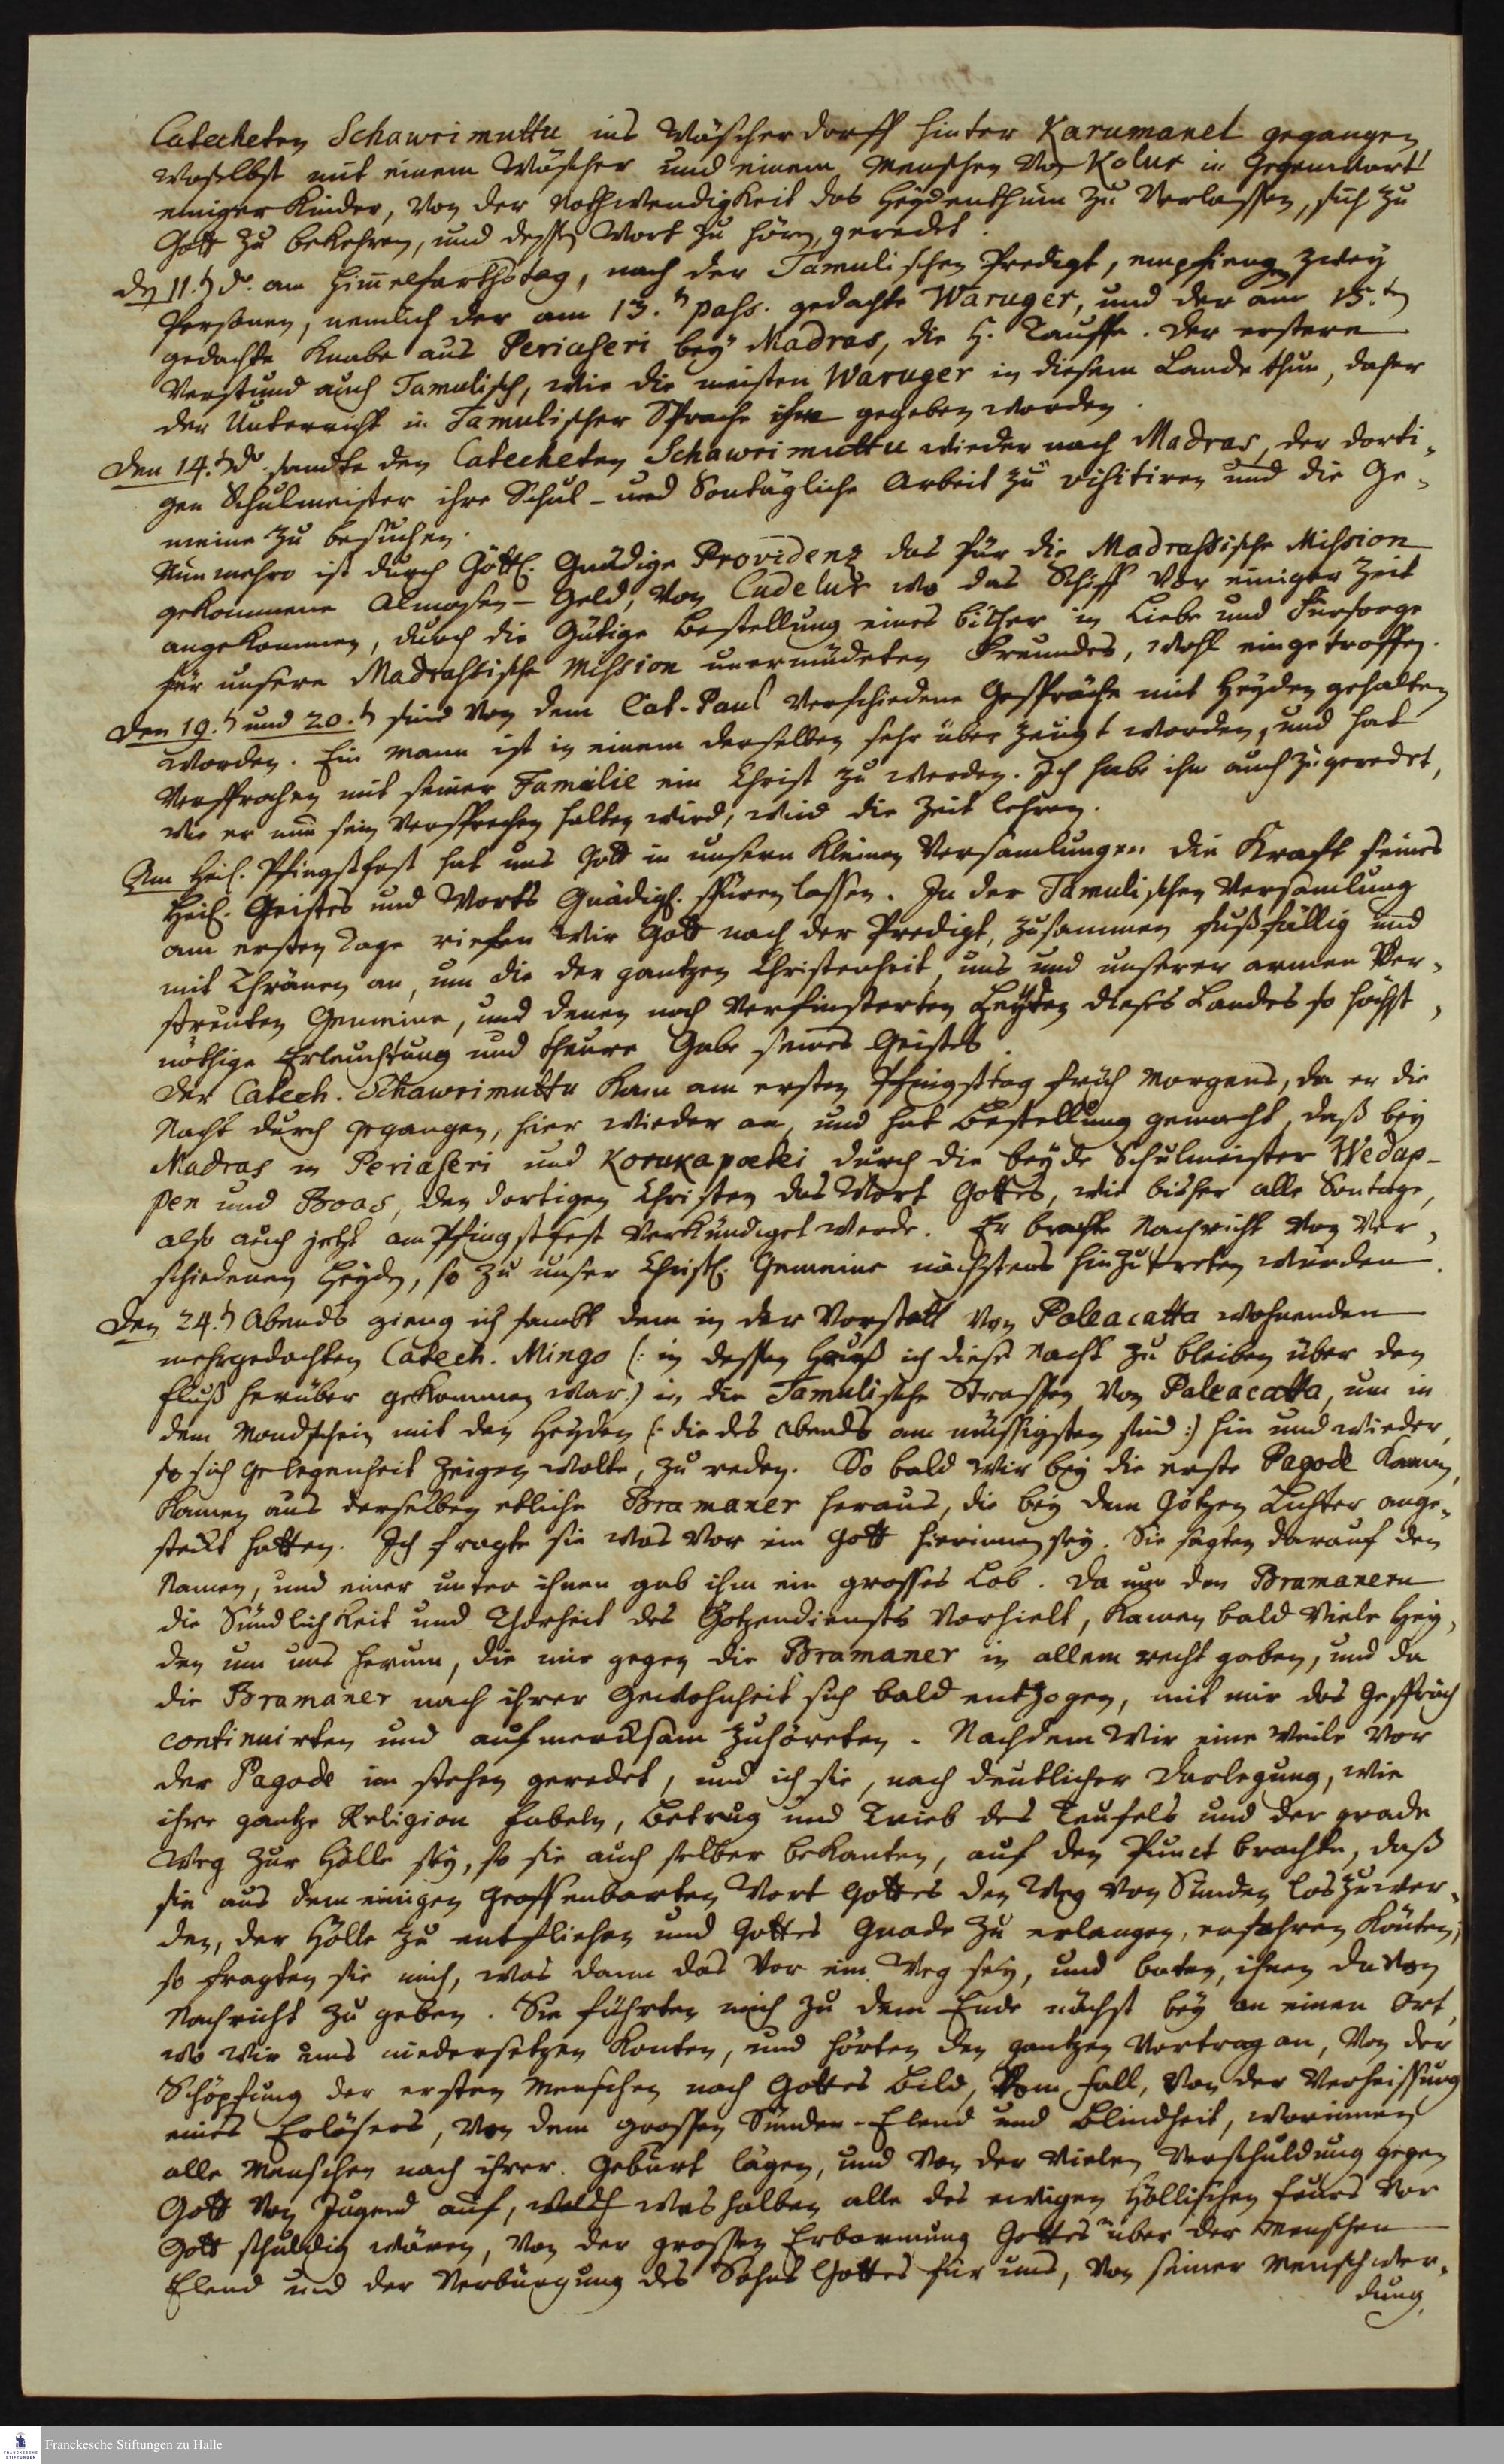 Catecheten Schawrimuttu ins Wäscherdorff hinter Karumanel gegangen
woselbst mit einem Wäscher und einem Menschen von Kolur in Gegenwart
einiger Kinder, von der Nothwendigkeit das Heydenthum zu verlassen, sich zu
Gott zu bekehren, und dessen Wort zu hörn, geredet.
den 11.t. do. am Himelfarthstag, nach der Tamulischen Predigt, empfiengen zwey
Personen, nemlich der am 13.t pass. gedachte Waruger, und der am 15.ten
gedachte Knabe aus Periaseri bey Madras, die H. Tauffe. Der erstere
verstund auch Tamulisch, wie die meisten Waruger in diesem Lande thun, daher
der Unterricht in Tamulischer Sprache ihm gegeben worden.
Den 14.t do. sandte den Catecheten Schawrimuttu wieder nach Madras, der dorti-
gen Schulmeister ihre Schul- und Sontägliche Arbeit zu visitiren und die Ge-
meine zu besuchen.
Nunmehro ist durch Göttl. gnädige Providenz das für die Madrassische Mission
gekommene Almosen-Geld, von Cudelur wo das Schiff vor einiger Zeit
angekommen, durch die gütige Bestellung eines bisher in Liebe und Fürsorge
für unsere Madrassische Mission unermüdeten Freundes, wohl eingetroffen.
Den 19.t und 20.t sind von dem Cat. Paul verschiedene Gespräche mit Heyden gehalten
worden. Ein Mann ist in einem derselben sehr überzeugt worden, und hat
versprochen mit seiner Familie ein Christ zu werden. Ich habe ihm auch zugeredet,
wie er nun sein Versprechen halten wird, wird die Zeit lehren.
Am Heil. Pfingstfest hat uns Gott in unsern kleinen Versamlungen die Kraft seines
Heil. Geistes und Worts gnädigl. spüren lassen. In der Tamulischen Versamlung
am ersten Tage riefen wir Gott nach der Predigt, zusammen fußfällig und
mit Thränen an, um die der gantzen Christenheit, uns und unserer armen Zer-
streuten Gemeine, und denen noch verfinsterten Heyden dieses Landes so höchst-
nöthige Erleuchtung und theure Gabe seines Geistes.
Der Catech. Schawrimuttu kam am ersten Pfingsttag früh morgens, da er die
Nacht durch gegangen, hier wieder an, und hat Bestellung gemacht, daß bey
Madras in Periaseri und Korukapoetei durch die beyde Schulmeister Wedap-
pen und Boas, den dortigen Christen das Wort Gottes, wie bisher alle Sontage,
also auch jetzt am Pfingstfest verkündiget werde. Er brachte Nachricht von ver-
schiedenen Heyden, so zu unser Christl. Gemeine nächstens hinzutreten würden.
Den 24.t Abends gieng ich samt dem in der Vorstatt von Paleacatta wohnenden
mehrgedachten Catech. Mingo (: in dessen Hauß ich diese Nacht zu bleiben über den
Fluß herüber gekommen war:) in die Tamulische Strassen von Paleacatta, um in
dem Mondschein mit den Heyden (: die des Abends am müssigsten sind :) hin und wieder,
so sich Gelegenheit zeigen wolte, zu reden. So bald wir bey die erste Pagode kamen,
kamen aus derselben etliche Bramaner heraus, die bey dem Götzen Lichter ange-
steckt hatten. Ich fragte sie was vor ein Gott hierinnen sey. Sie sagten darauf den
Namen, und einer unter ihnen gab ihm ein grosses Lob. Da nun den Bramanern
die Sündlichkeit und Thorheit des Götzendiensts vorhielt, kamen bald viele Hey-
den um uns herum, die mir gegen die Bramaner in allem recht gaben, und da
die Bramaner nach ihrer Gewohnheit sich bald entzogen, mit mir das Gespräch
continuirten und aufmercksam zuhöreten. Nachdem wir eine Weile vor
der Pagode im stehen geredet, und ich sie, nach deutlicher Darlegung, wie
ihre gantze Religion Fabeln, Betrug und Trieb des Teufels und der grade
Weg zur Hölle sey, so sie auch selber bekanten, auf den Punct brachte, daß
sie aus dem einigen geoffenbarten Wort Gottes den Weg von Sünden loszuwer-
den, der Hölle zu entfliehen und Gottes Gnade zu erlangen, erfahren könten;
so fragten sie mich, was dann das vor ein Weg sey, und baten, ihnen davon
Nachricht zu geben. Sie führten mich zu dem Ende nächst bey an einen Ort,
wo wir uns niedersetzen konten, und hörten den gantzen Vortrag an, von der
Schöpfung der ersten Menschen nach Gottes Bild, vom Fall, von der Verheissung
eines Erlösers, von dem grossen Sünden-Elend und Blindheit, worinnen
alle Menschen nach ihrer Geburt lägen, und von der vielen Verschuldung gegen
Gott von Jugend auf, weshalben alle des ewigen höllischen Feurs vor
Gott schuldig wären, von der grossen Erbarmung Gottes über der Menschen
Elend und der Verbürgung des Sohns Gottes für uns, von seiner Menschwer-
dung,
Franckesche Stiftungen zu Halle